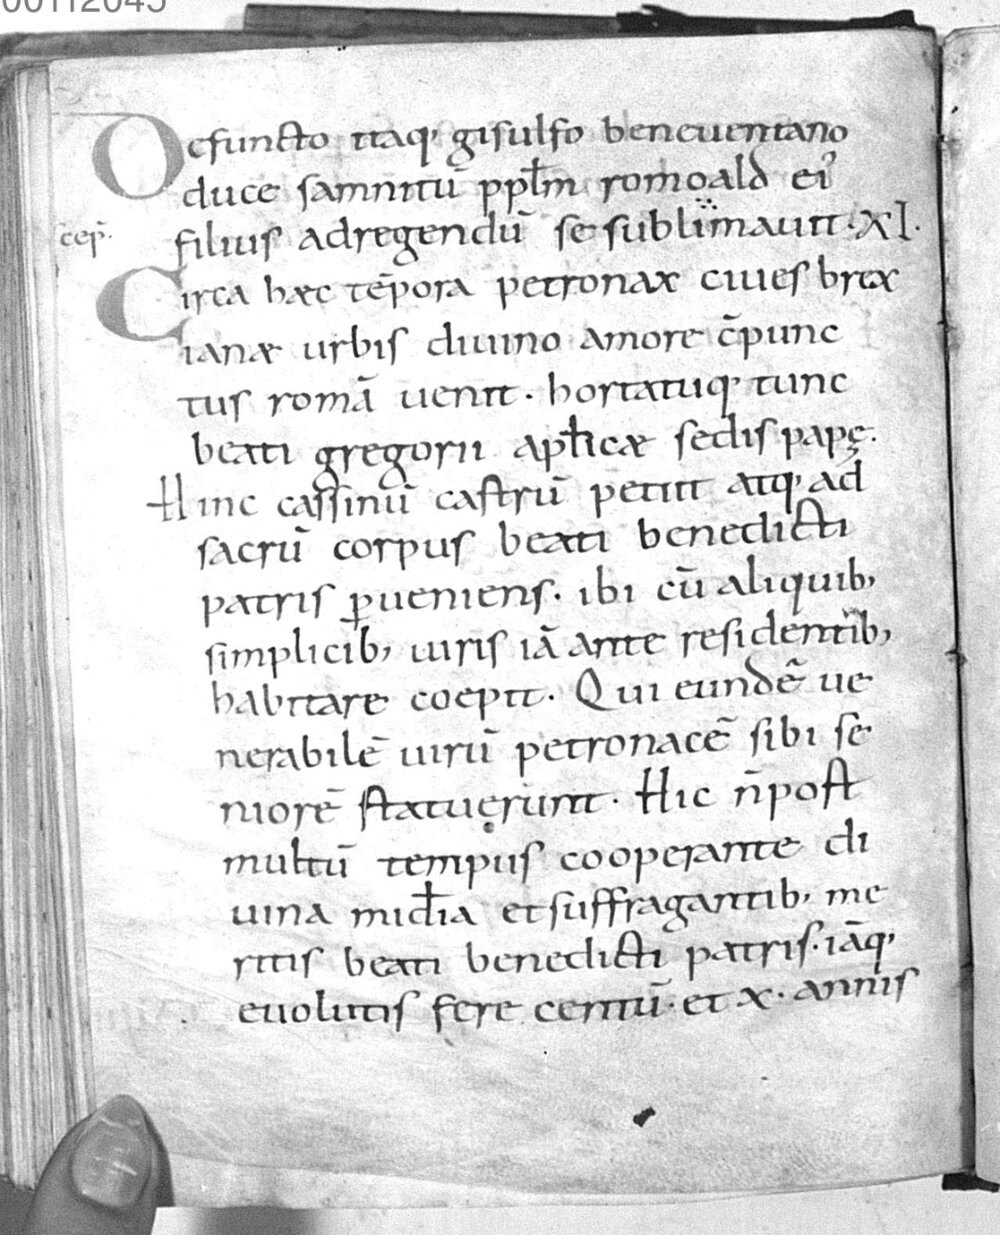 Defuncto itaq; gisulfo beneuentano
duce samnitū pplm̄ romoald ei᾽
filius adregendū se sublimauit · XI ·
cep̄.
Circa hæc tēpora petronax ciues brex
ianæ urbis diuino amore c̄punc
tus romā uenit · hortatuq; tunc
beati gregorii aptl̄icæ sedis papę.
Hinc cassinū castrū petiit atq; ad
sacrū corpus beati benedicti
patris ꝑueniens · ibi cū aliquib;
simplicib; uiris iā ante residentib;
habitare coepit · Qui eundē ue
nerabilē uirū petronacē sibi se
niorē statuerunt · Hic n̄ post
multū tempus cooperante di
uina mid̄ia et suffragantib; me
ritis beati benedicti patris · iāq;
euolutis fere centū · et x · annis